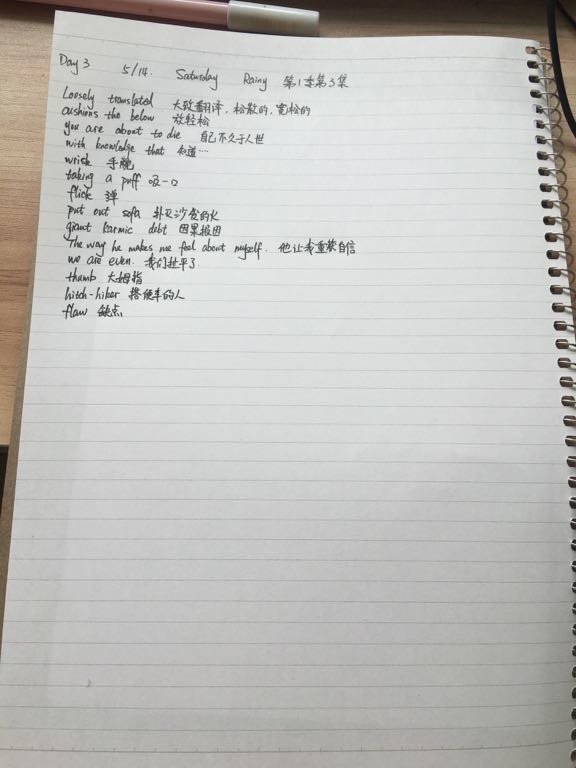 Day 3 5/14. Saturday Rainy 第1季第3集
Loosely translated 大致翻译,松散的,宽松的
cushions the below 放轻松
you are about to die 自己不久于人世
with knowledge that 知道…
wrisk 手腕
taking a puff 吸一口
flick 弹
put out sofa 扑灭沙发的火
giant karmic debt 因果报因
The way he makes me feel about myself. 他让我重获自信
we are even. 我们扯平了.
thumb 大拇指
hitch-hiker 搭便车的人
flaw 缺点